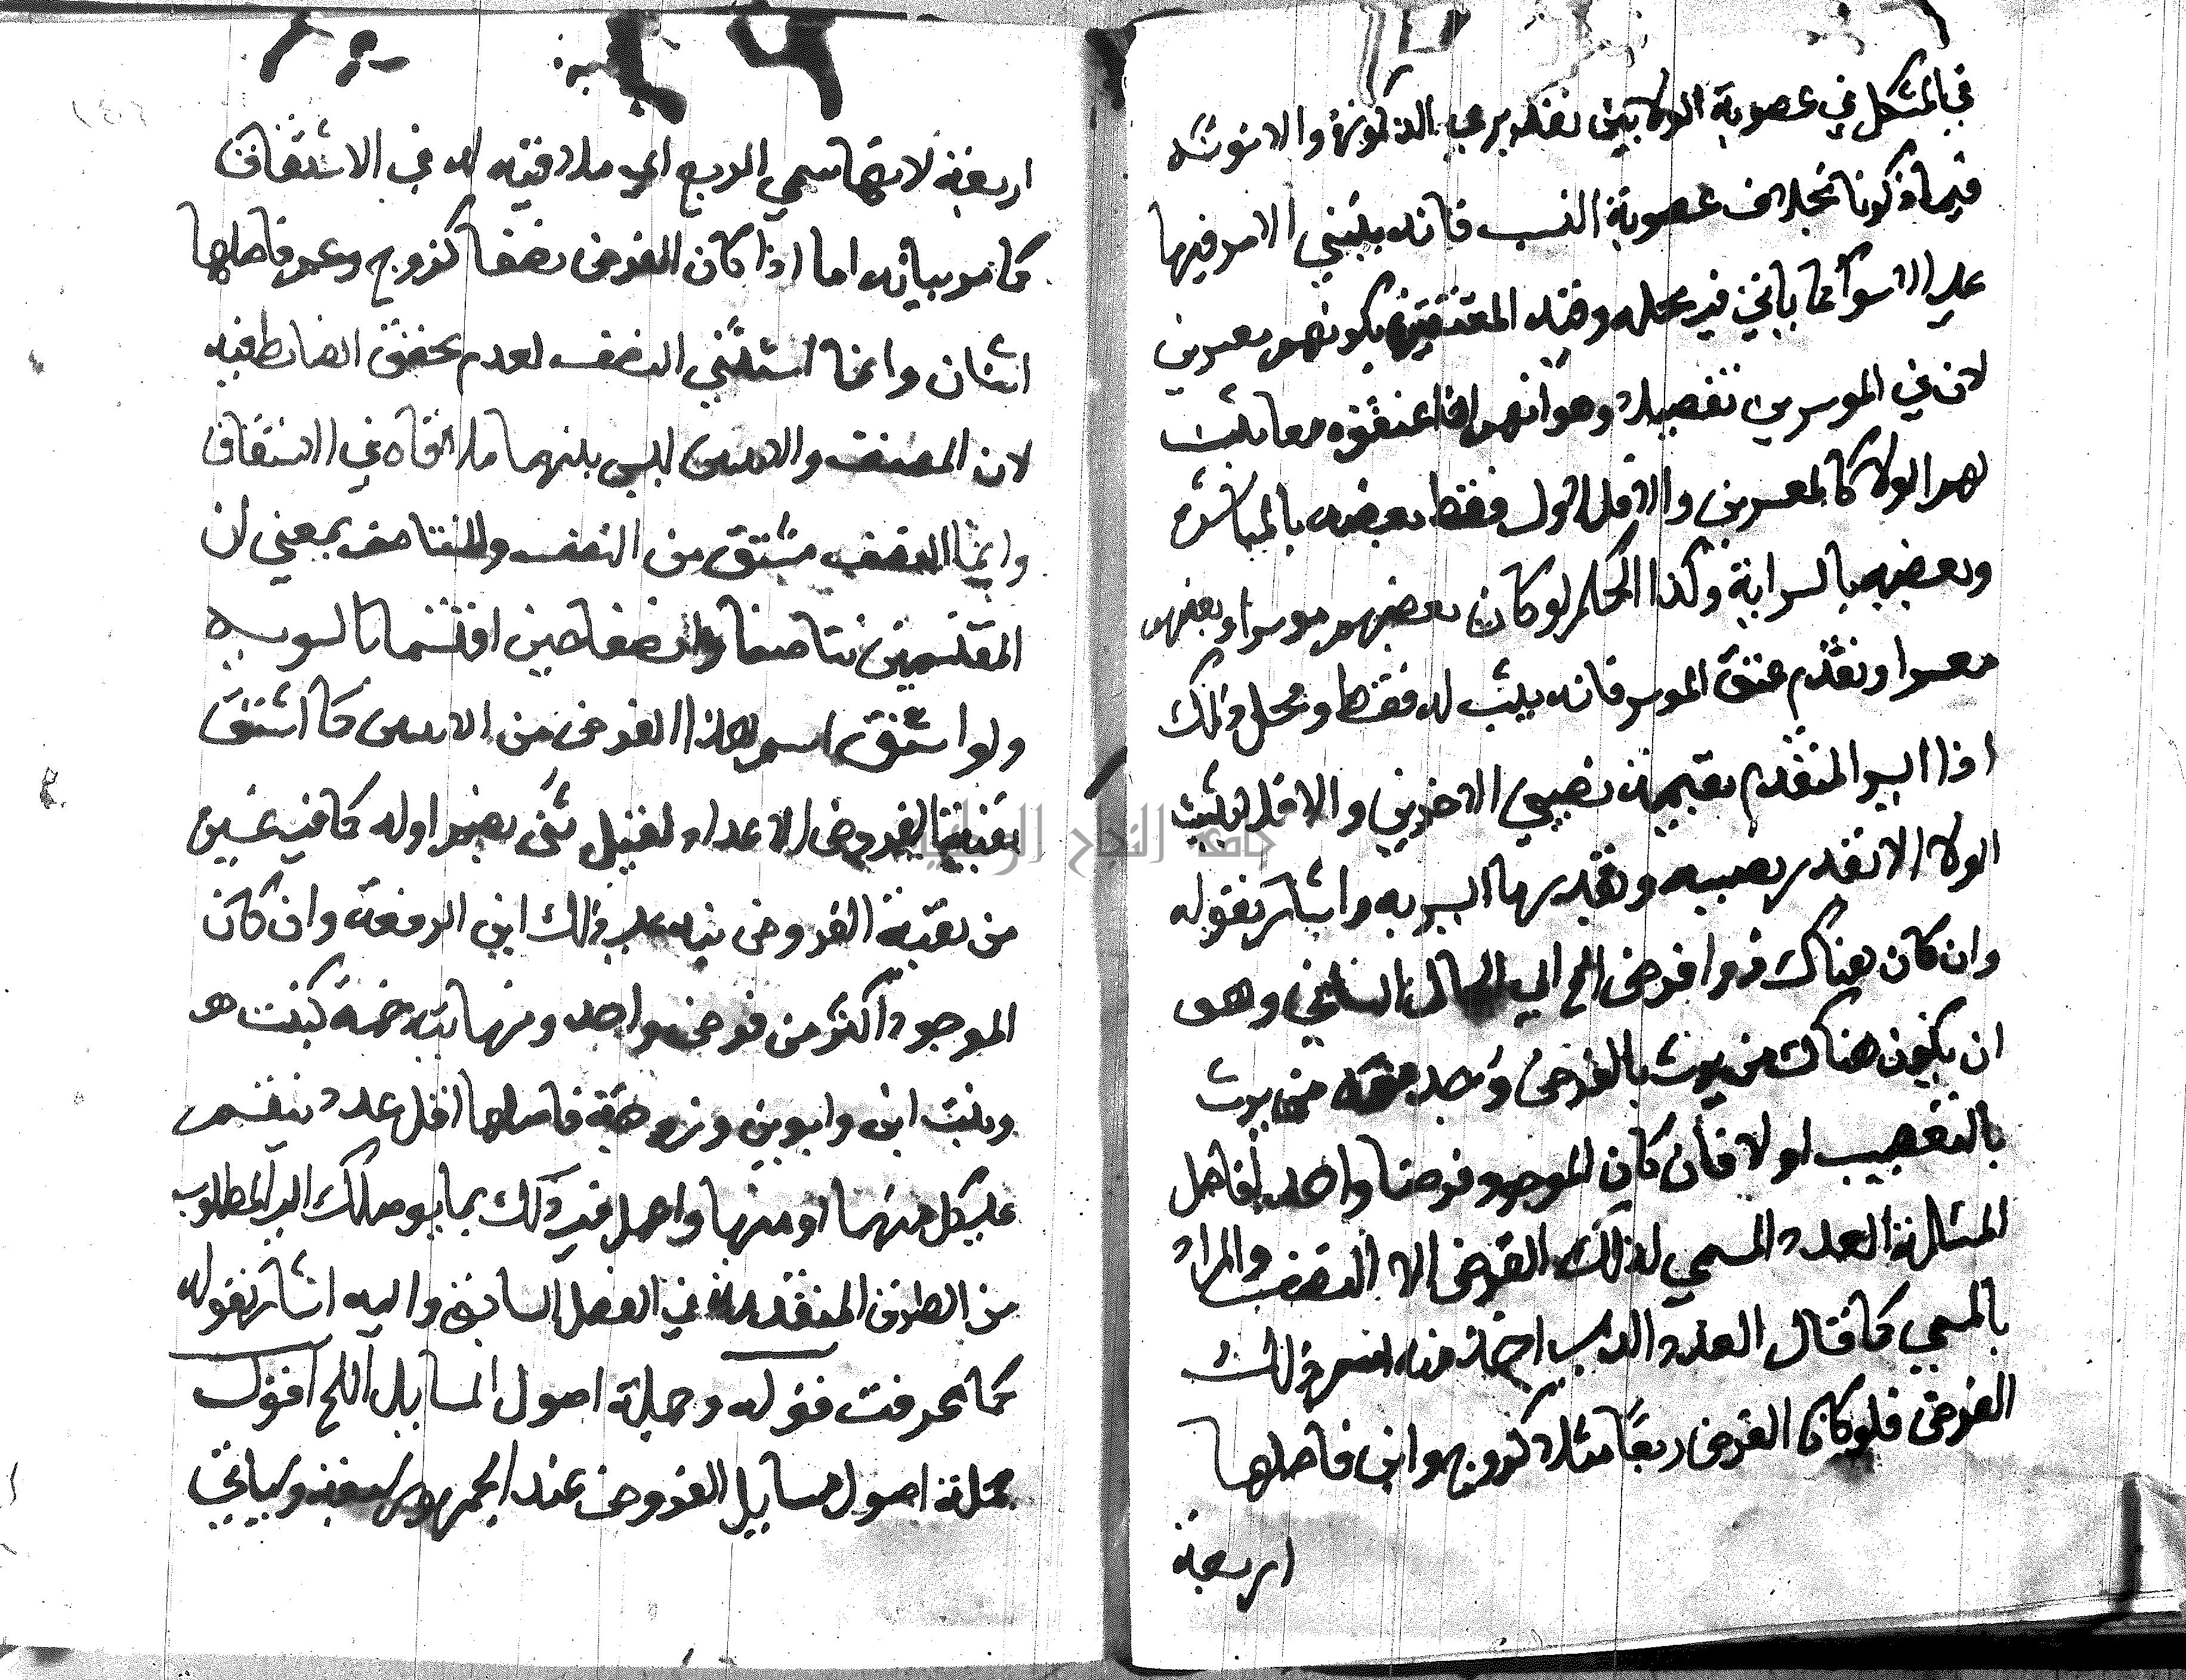 في المشكل في عصوبة الولا بين تقدير في الذكورة والانوثه
فيما ذكرنا بخلاف عصوبة النسب فانه يبتني الامر فيها
على الاسوا كما ياتي في محله وقيد المعتقين بكونهم معسرين
لان في الموسرين تفصيلا وهو انهم اذا اعتقوه معا ثبت
لهم الولا كالمعسرين والا فللاول فقط بعضه بالمباشرة
وبعضه بالسراية وكذا الحكم لو كان بعضهم موسرا وبعضهم
معسرا وتقدم عتق الموسر فانه يثبت له فقط ومحل ذلك
اذا ايسر المتقدم بقيمة نصيبي الاخرين والا فلا يثبت
الولا الا بقدر نصيبه وبقدر ما ايسر به واشار بقوله
وان كان هناك ذوا فرض الخ الي الحال الثاني وهو
ان يكون هناك من يرث بالفرض وجد معه من يرث
بالتعصيب او لا فان كان الموجود فرضا واحدا فاصل
المسالة العدد المسمي لذلك الفرض الا النصف والمراد
بالمسمي كما قال العدد الذي اخذ منه اسم ذلك
الفرض فلو كان الفرض ربعا مثلا كزوج وابن فاصلها
اربعة
اربعة لانها سمي الربع اي ملاقيته له في الاشتقاق
كما مر بيانه اما اذا كان الفرض نصفا كزوج وعم فاصلها
اثنان وانما استثني النصف لعدم تحقق الضابط فيه
لان النصف والاثنين ليس بينهما ملاقاة في الاشتقاق
وانما النصف مشتق من النصف والتناصف بمعني ان
المقتسمين تناصفا واقتسما بالسويه
ولو اشتق اسم لهذا الفرض من الاثنين كما اشتق
بقية الفروض الاعداد لقيل ثني بضم اوله كما في غيره
من بقية الفروض نبه على ذلك ابن الرفعة وان كان
الموجود اكثر من فرض واحد ونهايته خمسة كبنت
وبنت ابن وابوين وزوجة فاصلها اقل عدد ينقسم
على كل منهما او منها واعمل في ذلك بما يوصلك الي المطلوب
من الطرق المتقدمة في الفصل السابق واليه اشار بقوله
كما عرفت قوله وجملة اصول المسايل الخ اقول
جملة اصول مسايل الفروض عند الجمهور سبعة وسياتي
جامعة النجاح الوطنية